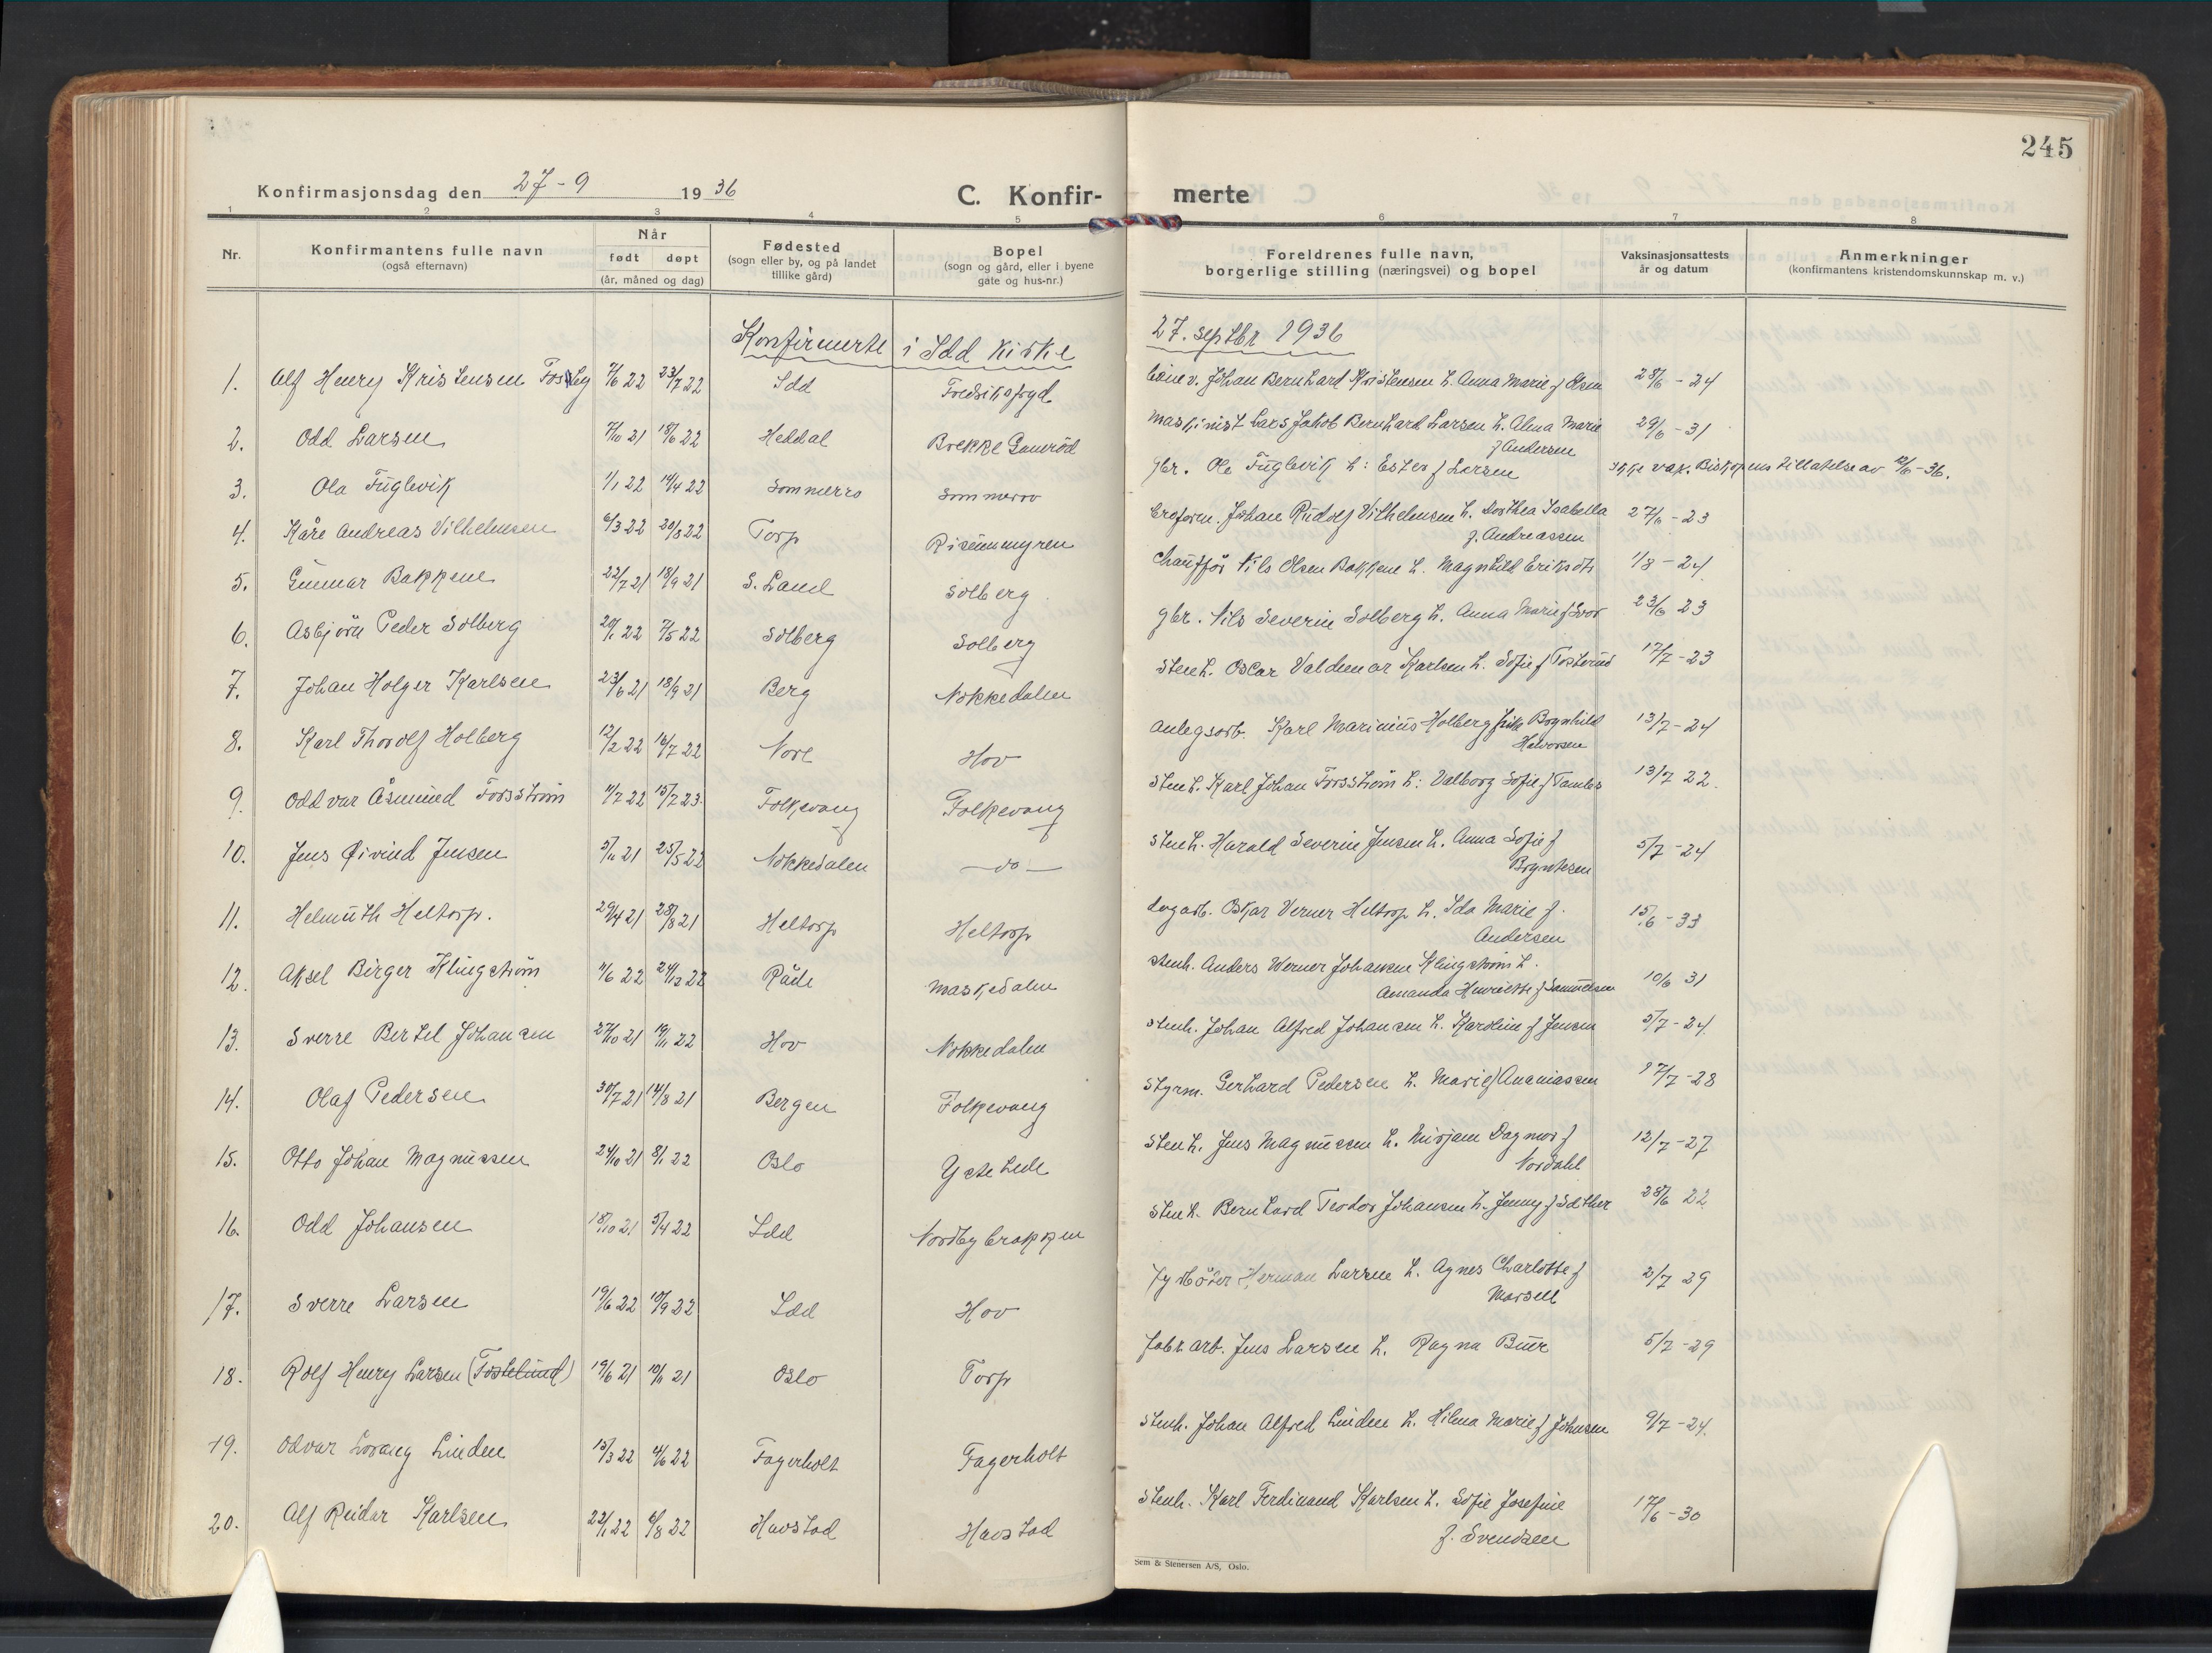 245
Konfirmasjonsdag den 27-9 1936
C. Konfir-
merte
1 2 3 4 5 6 7 8
Nr.
Konfirmantens fulle navn
(også efternavn)
Når
født døpt
(år, måned og dag)
Fødested
(sogn eller by, og på landet
tillike gård)
Bopel
(sogn og gård, eller i byene
gate og hus-nr.)
Foreldrenes fulle navn,
borgerlige stilling (næringsvei) og bopel
Vaksinasjonsattests
år og datum
Anmerkninger
(konfirmantens kristendomskunnskap m. v.)
Konfirmerte i Idd Kirke 27. septbr 1936
1. Alf Henry Kristensen 7/6 22 23/7 22 Idd Johan Bernhard Kristensen h. Anna Marie f Olsen 28/6 - 24
2. Odd Larsen 7/10 21 18/6 22 Heddal Brekke maskinist Lars Jakob Bernhard Larsen h. Alma Marie 29/6 - 31
f Andersen
3. Ola Fuglevik 1/1 22 14/4 22 Sommerro Sommerro gbr. Ole Fuglevik h: Ester f Larsen ikke vak. Biskopens tillatelse av 12/6 - 36.
4. Kåre Andreas Vilhelmsen 6/3 22 20/8 22 Torp Risummyren Johan Rudolf Vilhelmsen h. Dorthea Isabella 27/6 - 23
f. Andreassen
5. Gunnar Bakkene 22/7 21 18/9 21 S. Land Solberg Chauffør Nils Olsen Bakkene h. Magnhild Eriksdtr 1/8 - 24
6. Asbjørn Peder Solberg 20/1 22 7/5 22 Solberg Solberg gbr. Nils Severin Solberg h. Anna Marie f Svor 23/6 23
7. Johan Holger Karlsen 23/6 21 18/9 21 Berg Nokkedalen Stenh. Oscar Valdemar Karlsen h. Sofie f Tosterud 17/7 - 23
8. Karl Thorolf Holberg 12/2 22 16/7 22 Nore Hov Anlegsarb. Karl Marinius Holberg Brynhild 13/7 - 24
Halvorsen
9. Oddvar Åsmund Forsstrøm 11/7 22 15/7 23. Folkvang Folkvang Stenh. Karl Johan Forsström h: Valborg Sofie f 13/7 22.
10. Jens Øivind Jensen 5/11 21 25/5 22 Nokkedalen — do — Stenh. Harald Severin Jensen h. Anna Sofie f 5/7 - 24
Bryntesen
11. Helmuth Heltorp. 29/4 21 28/8 21 Heltorp Heltorp dagarb. Oskar Verner Heltorp h. Ida Marie f. 15/6 - 33
Andersen
12. Aksel Birger Klingström 11/6 22 24/12 22 Råde Maskedalen stenh. Anders Werner Johansen Klingström h. 10/6 31
Amanda Henriette f Samuelsen
13. Sverre Bertel Johansen 27/10 21 19/1 22 Hov Nokkedalen stenh. Johan Alfred Johansen h. Karoline f Jensen 5/7 - 24.
14. Olaf Pedersen 30/7 21 14/8 21 Bergen Folkvang Styrm. Gerhard Pedersen h. Marie f Ananiassen 17/7 - 28
15. Otto Johan Magnussen 24/10 21 8/1 22 Oslo Ystehede Stenh. Jens Magnussen h. Mirjam Dagmar f 12/7 - 27
Nordahl
16. Odd Johansen 18/10 21 5/4 22 Idd Nordbybrakken Stenh. Bernhard Teodor Johansen h. Jenny f Säther 28/6 22
17. Sverre Larsen 19/6 22 10/9 22 Idd Hov Fyrböter Herman Larsen h. Agnes Charlotte f 2/7 29
18. Rolf Henry Larsen (Tostelund) 19/6 21 10/11 21 Oslo Torp Fabr. arb. Jens Larsen h. Ragna Buer 5/7 - 29
19. Odvar Lorang Linden 15/3 22 4/6 22 Fagerholt Fagerholt Stenh. Johan Alfred Linden h. Hilma Marie f Johnsen 9/7 - 24.
20. Alf Reidar Karlsen 22/1 22 6/8 22 Havstad Havstad Stenh. Karl Ferdinand Karlsen h. Sofie Josefine 17/6 - 30
f. Svendsen
Sem & Stenersen A/S, Oslo.